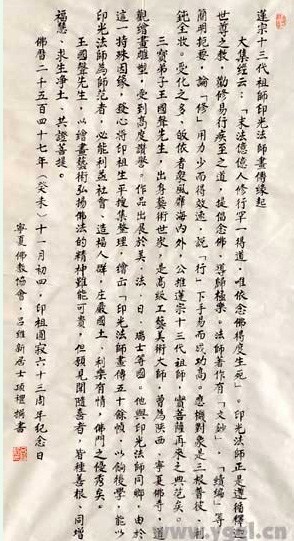 蓬宗十三代祖師印光法師畫傳緣起
大集經云：「末法億億人修行罕一得道，唯依念佛得度生死」。印光法師正是遵循釋迦
世尊之教，勸修易行疾至之道，提倡念佛，導歸極樂。法師著作有「文鈔」、「續編」等，
簡明扼要，論「修」用力少而得效速，說「行」下手易而成功高。應機對象是三根普被，利
鈍全收。受化之多，皈依者眾風靡海內外，公推蓮宗十三代祖師，實菩薩再來之典范矣。
三寶弟子王國聲先生，出身藝術世家，是高級工藝美術大師，曾為陝西、寧夏佛寺、道
觀繪畫雕塑，受到高度讚譽。作品出展於美、法、日、瑞士等國。他與印光法師同鄉，由於
這一特殊因緣，發心將印祖生平搜集整理，繪出「印光法師畫傳五十餘幀，以餉後學，能以
印光法師為師范者，必能利益社會、造福人群，庄嚴國土，利樂有情，佛門之優秀矣。
王國聲先生，以繪畫藝術弘揚佛法的精神難能可貴，但願見聞隨喜者，皆種善根、同增
福慧、求生淨土、共證菩提。
佛曆二千五百四十七年（癸未）十一月初四，印祖圓寂六十三周年紀念日
寧夏佛教協會，呂維新居士頂禮撰書
www.yggl.cn